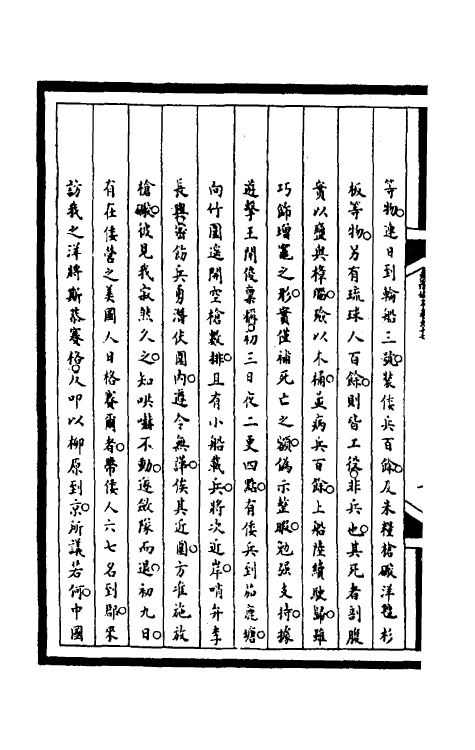 等物。連日到輪船三號。裝倭兵百餘。及米糧槍礮洋氊杉
板等物。另有琉球人百餘。則皆工役。非兵也。其死者剖腹
實以鹽與樟腦。殮以木桶。並病兵百餘。上船陸續駛歸。雖
巧飾增竈之形。實僅補死亡之額。偽示整暇。勉强支持。據
遊擊王開俊稟稱。初三日夜二更四點。有倭兵到茄鹿塘。
向竹圍遙開空槍數排。且有小船載兵。將次近岸。哨弁李
長興密飭兵勇潛伏圍內。遵令無譁。俟其近圍。方准施放
槍礮。彼見我寂然久之。知哄嚇不動。遂斂隊而退。初九日。
有在倭營之美國人日格賽爾者。帶倭人六七名到郡。來
訪我之洋將斯恭賽格。及叩以柳原到京所議若何。中國